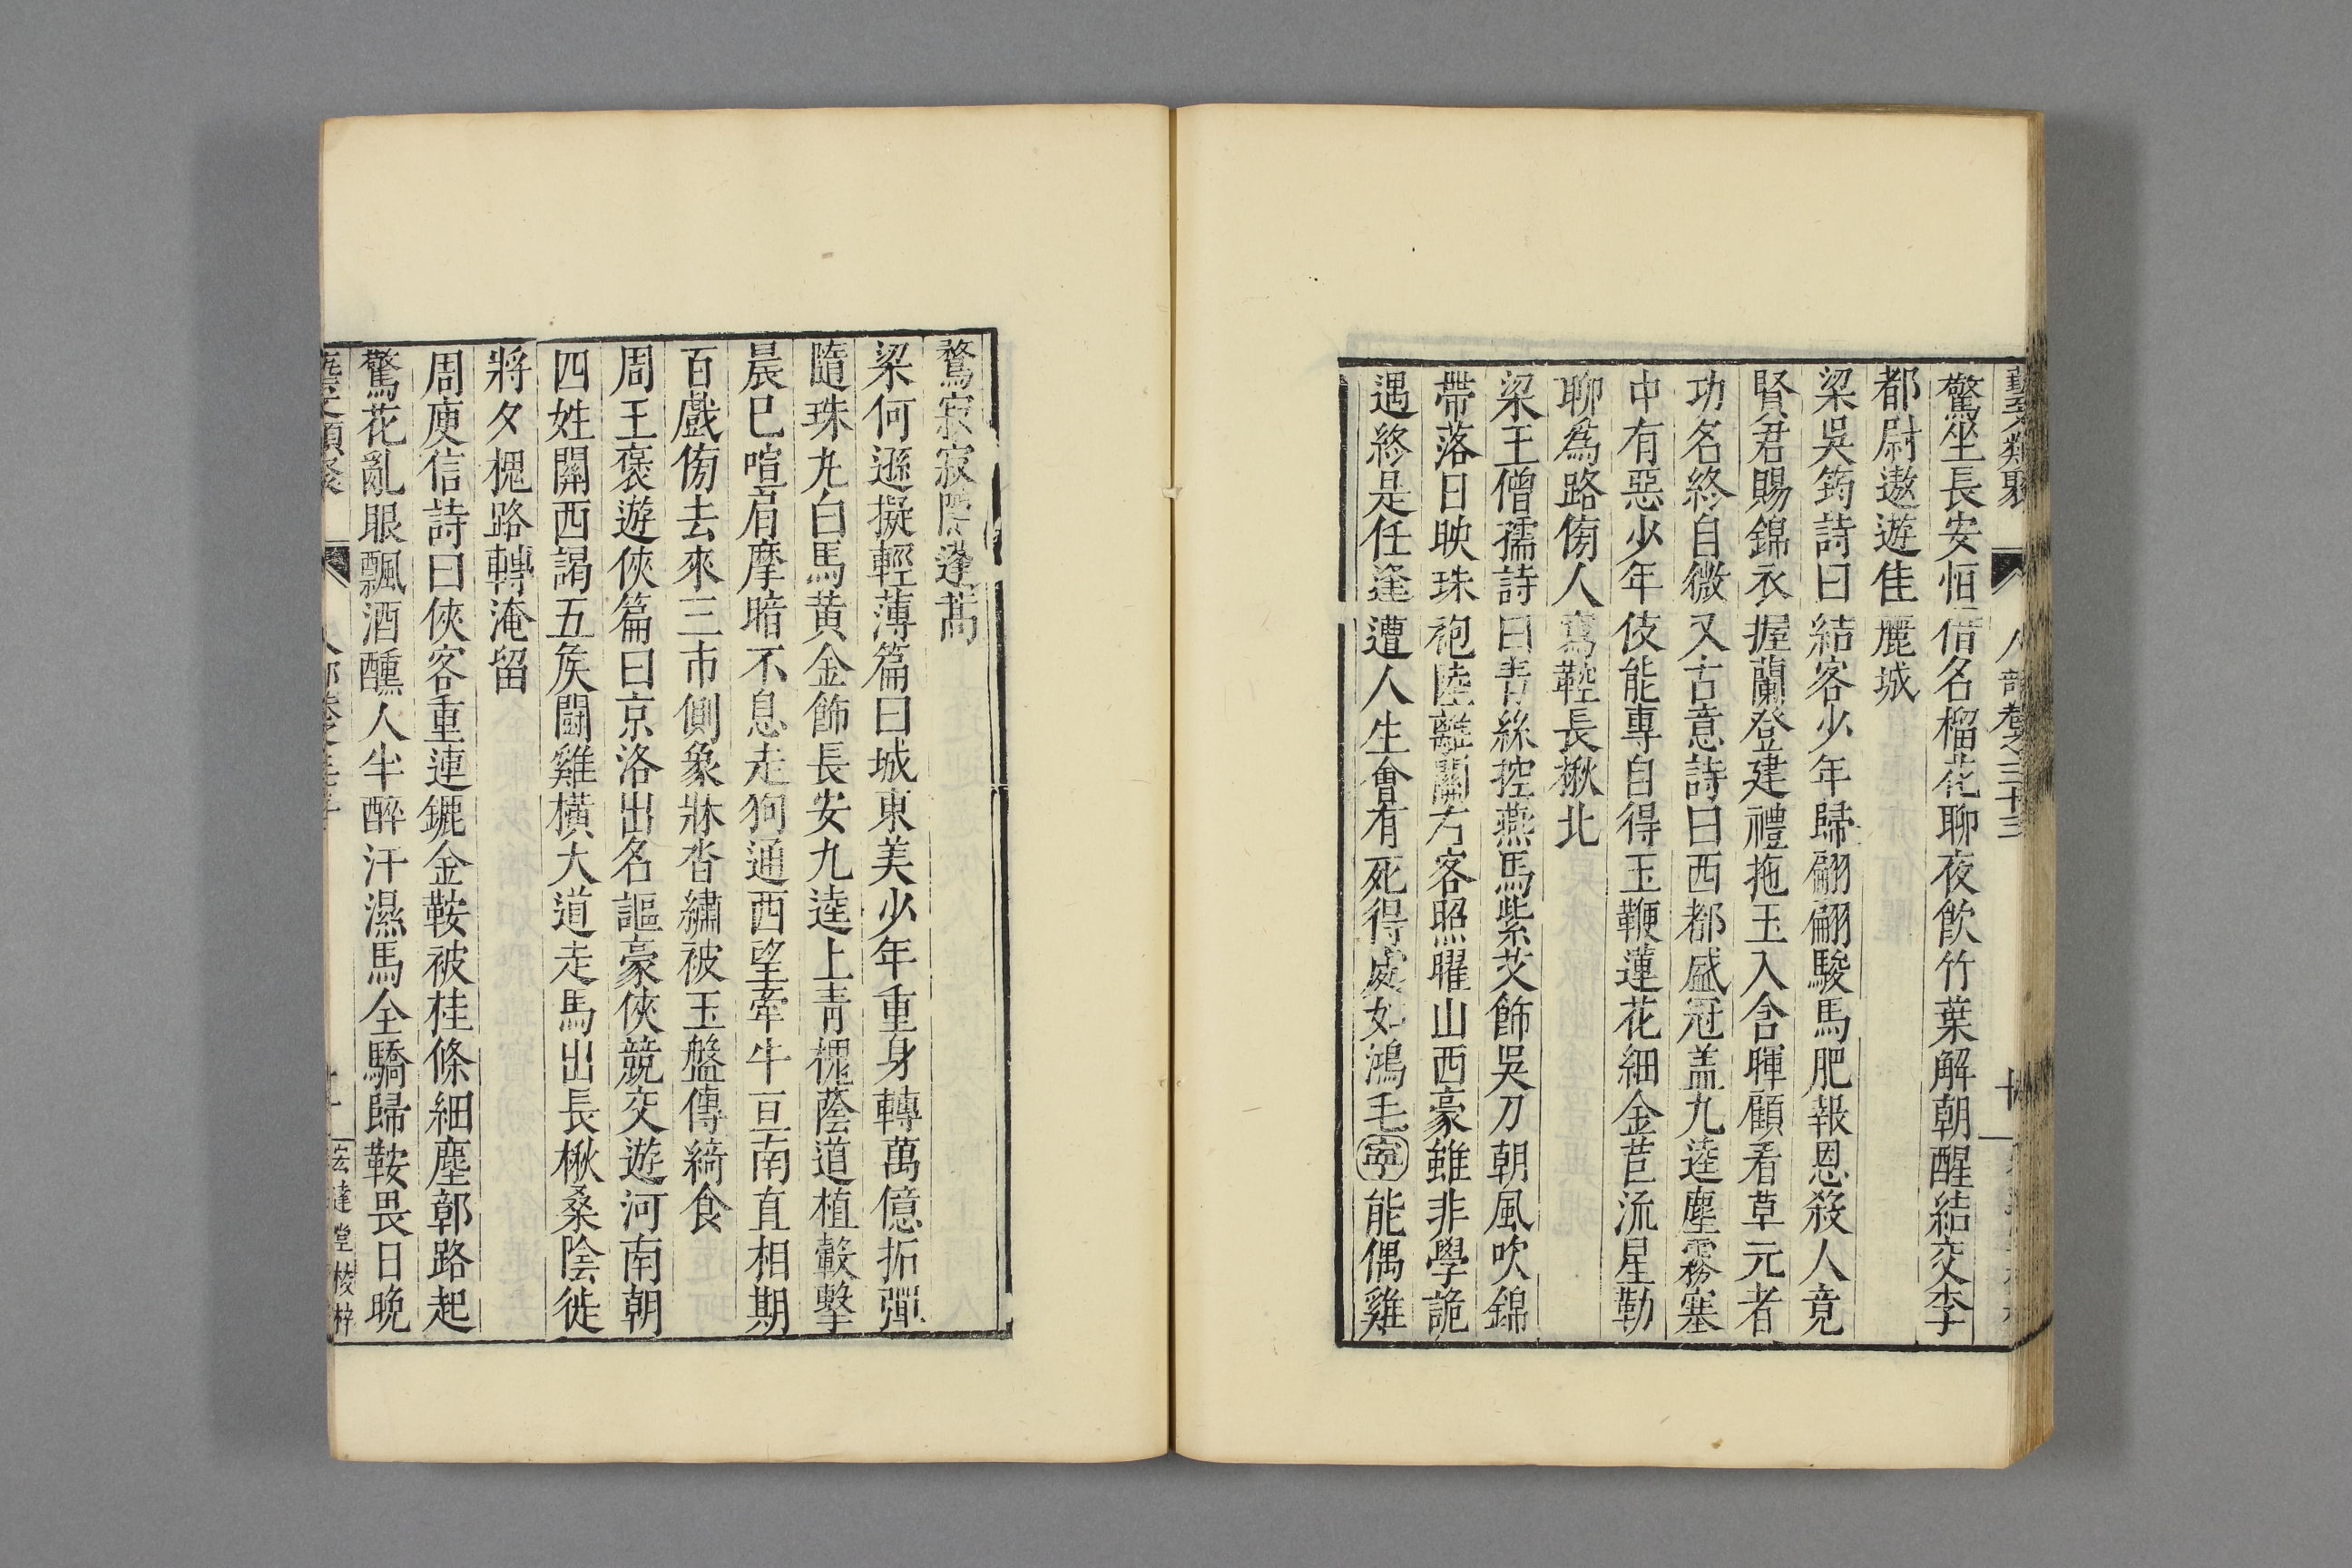 藝文類聚 人部卷之三十三
驚坐長安恒借名榴花聊夜飲竹葉解朝醒結交李
都尉遨遊佳麗城
梁吳筠詩曰結客少年歸翩翩駿馬肥報恩殺人竟
賢君賜錦衣握蘭登建禮拖玉入含暉顧看草元者
功名終自微又古意詩曰西都盛冠盖九逵塵霧塞
中有惡少年伎能專自得玉鞭蓮花細金苣流星勒
聊為路傍人寫鞚長楸北
梁王僧孺詩曰青絲控燕馬紫艾飾吳刀朝風吹錦
帶落日映珠袍陸離關右客照曜山西豪雖非學詭
遇終是任逢遭人生會有死得處如鴻毛寧能偶雞
鶩寂寂隱蓬蒿
梁何遜擬輕薄篇曰城東美少年重身轉萬億拓彈
隨珠丸白馬黃金飾長安九逵上青槐蔭道植轂擊
晨已喧肩摩暗不息走狗通西望牽牛亘南直相期
百戲傍去來三市側象牀沓繡被玉盤傳綺食
周王褒遊俠篇曰京洛出名謳豪俠競交遊河南朝
四姓關西謁五矦鬭雞橫大道走馬出長楸桑陰徙
將夕槐路轉淹留
周庾信詩曰俠客重連鑣金鞍被桂條細塵鄣路起
驚花亂眼飄酒醺人半醉汗濕馬全驕歸鞍畏日晚
藝文類聚 人部卷之三十三 十一 宏達堂校梓